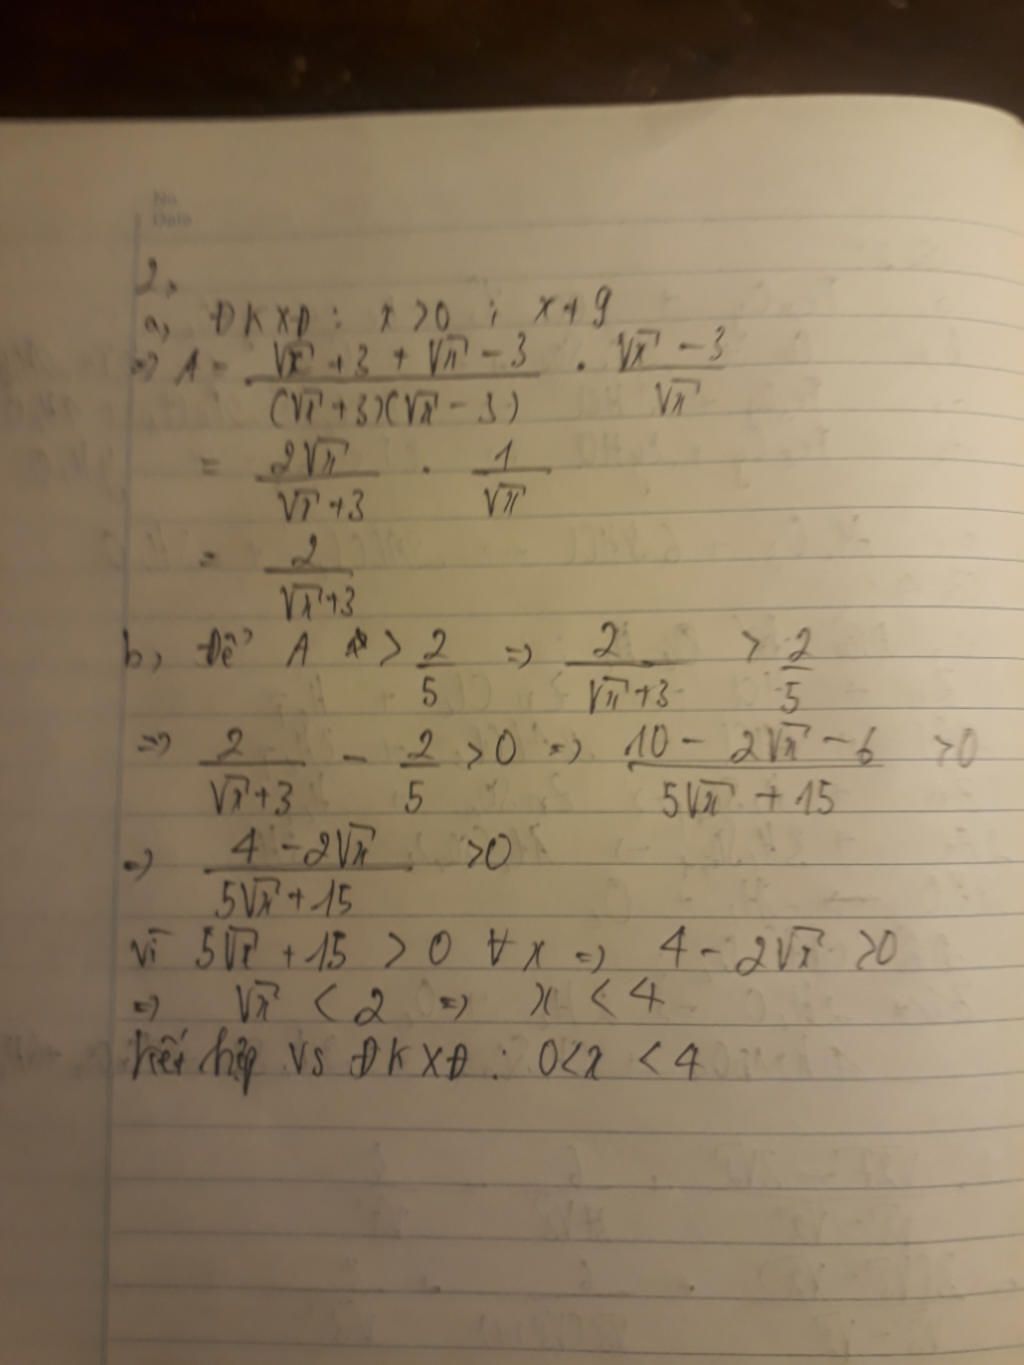 No
Date
2,
a, ĐKXĐ : x > 0 ; x ≠ 9
=> A = (√x + 3 + √x - 3) / ((√x + 3)(√x - 3)) . (√x - 3) / √x
= 2√x / (√x + 3) . 1 / √x
= 2 / (√x + 3)
b, Để A > 2/5 => 2 / (√x + 3) > 2/5
=> 2 / (√x + 3) - 2/5 > 0 => (10 - 2√x - 6) / (5√x + 15) > 0
=> (4 - 2√x) / (5√x + 15) > 0
vì 5√x + 15 > 0 ∀ x => 4 - 2√x > 0
=> √x < 2 => x < 4
kết hợp vs ĐKXĐ : 0 < x < 4